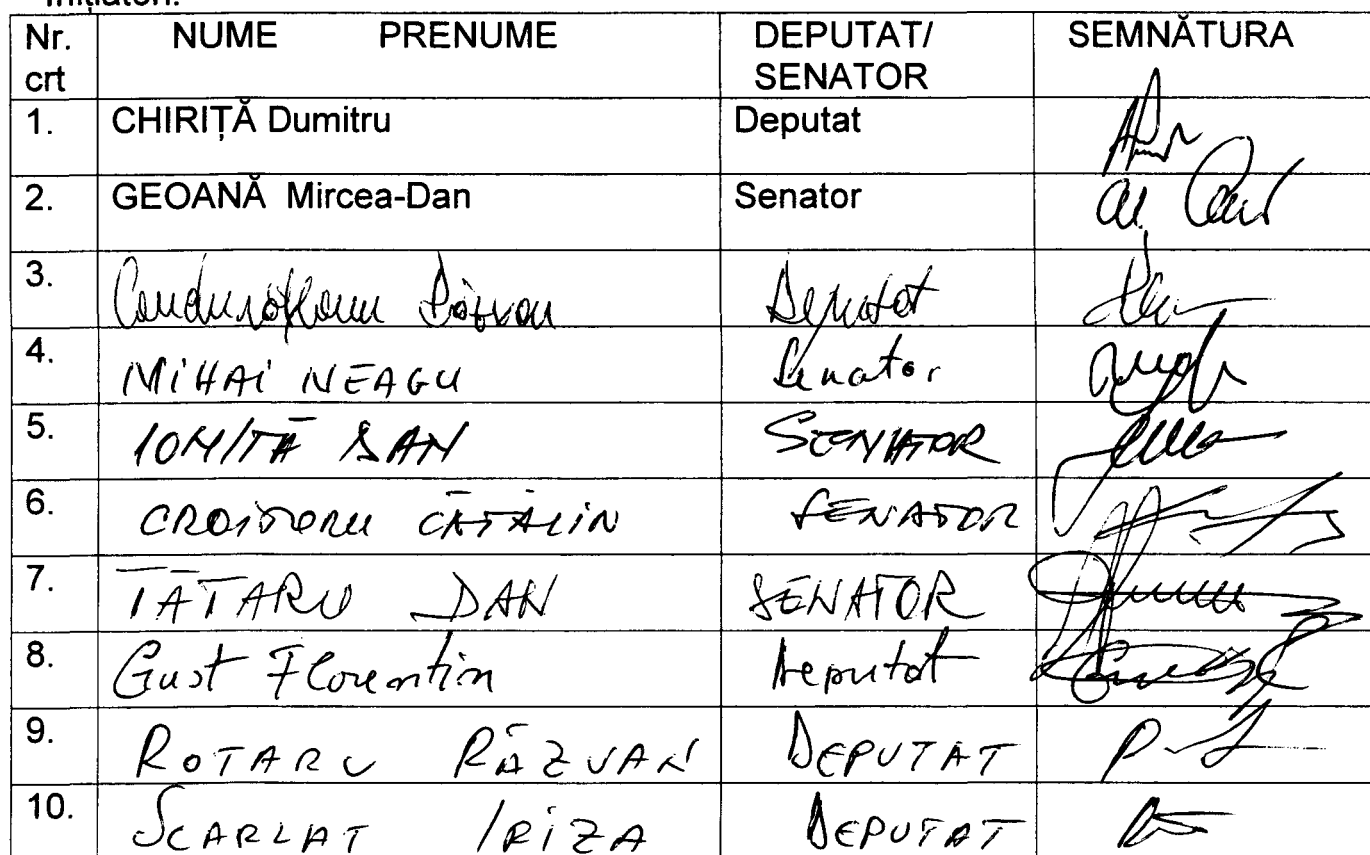 Inițiatori:
Nr. crt NUME PRENUME DEPUTAT/ SENATOR SEMNĂTURA
1. CHIRIȚĂ Dumitru Deputat
2. GEOANĂ Mircea-Dan Senator
3. Condurățeanu Răzvan Deputat
4. MIHAI NEAGU Senator
5. IONIȚĂ DAN SENATOR
6. CROITORU CĂTĂLIN SENATOR
7. TĂTARU DAN SENATOR
8. Gust Florentin Deputat
9. ROTARU RĂZVAN DEPUTAT
10. SCARLAT IRIZA DEPUTAT